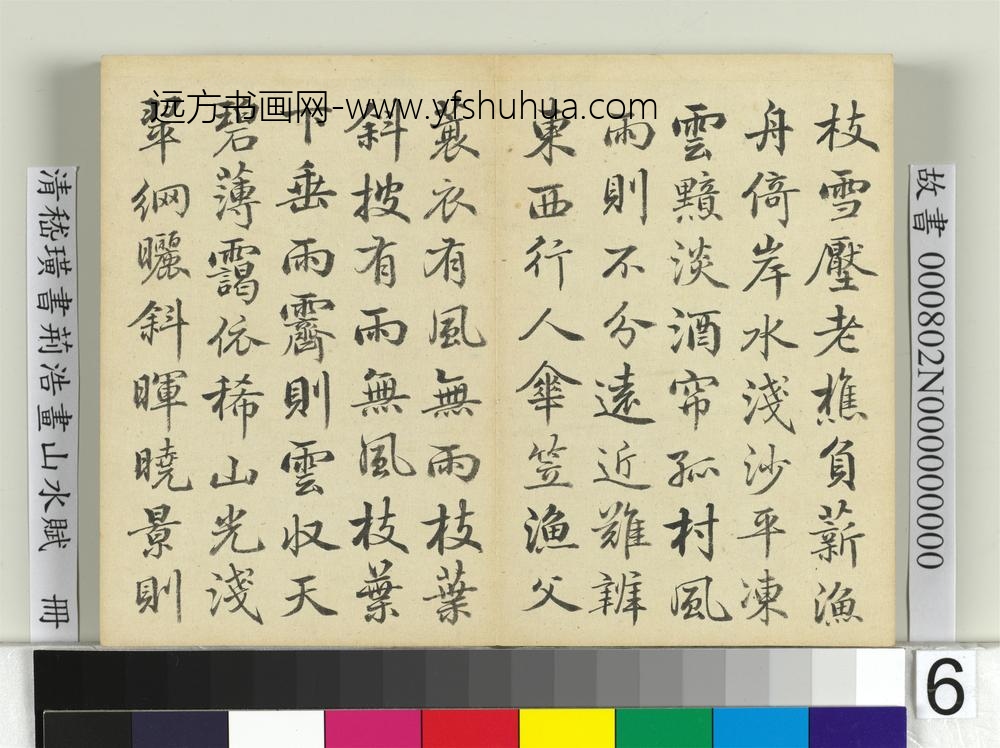 远方书画网-www.yfshuhua.com
枝雪壓老樵負薪漁
舟倚岸水淺沙平凍
雲黯淡酒帘孤村風
雨則不分遠近難辨
東西行人傘笠漁父
蓑衣有風無雨枝葉
斜披有雨無風枝葉
下垂雨霽則雲收天
碧薄靄依稀山光淺
翠網曬斜暉曉景則
故書 000802N000000000
清嵇璜書荊浩畫山水賦 冊
6